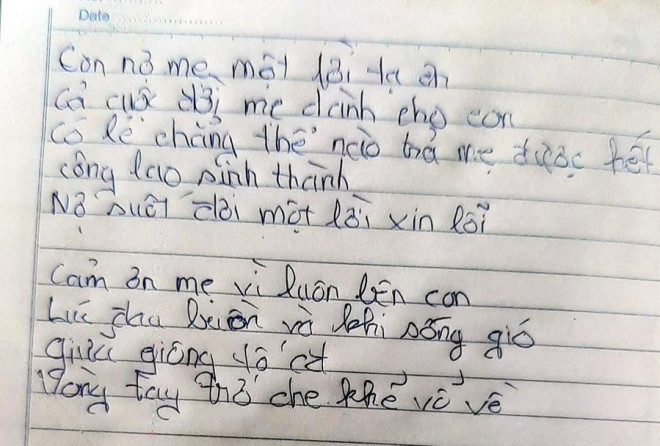 Date
Con nợ mẹ một lời tạ ơn
Cả cuộc đời mẹ dành cho con
Có lẽ chẳng thể nào trả mẹ được hết
công lao sinh thành
Nợ suốt đời một lời xin lỗi
Cảm ơn mẹ vì luôn bên con
Lúc đau buồn và khi sóng gió
giữa giông tố cđ
Vòng tay chở che khẽ vỗ về